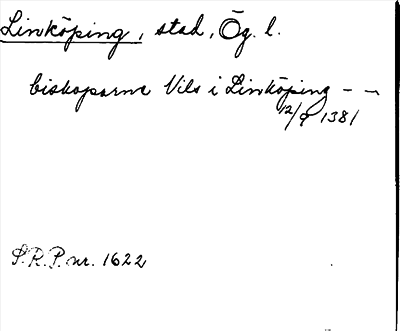 Linköping, stad, Ög. l.
biskoparne Nils i Linköping - -
12/9 1381
S.R.P. nr. 1622